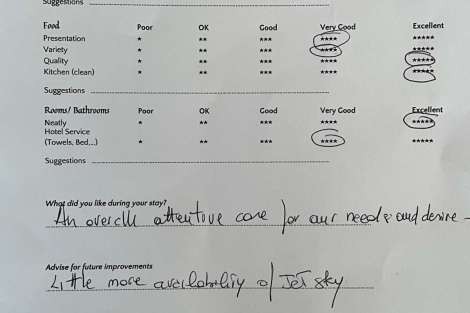 Suggestions
Food Poor OK Good Very Good Excellent
Presentation * ** *** **** *****
Variety * ** *** **** *****
Quality * ** *** **** *****
Kitchen (clean) * ** *** **** *****
Suggestions
Rooms/ Bathrooms Poor OK Good Very Good Excellent
Neatly * ** *** **** *****
Hotel Service
(Towels, Bed,..) * ** *** **** *****
Suggestions
What did you like during your stay?
An overall attentive care for our needs and desire -
Advise for future improvements
Little more availability of Jet sky